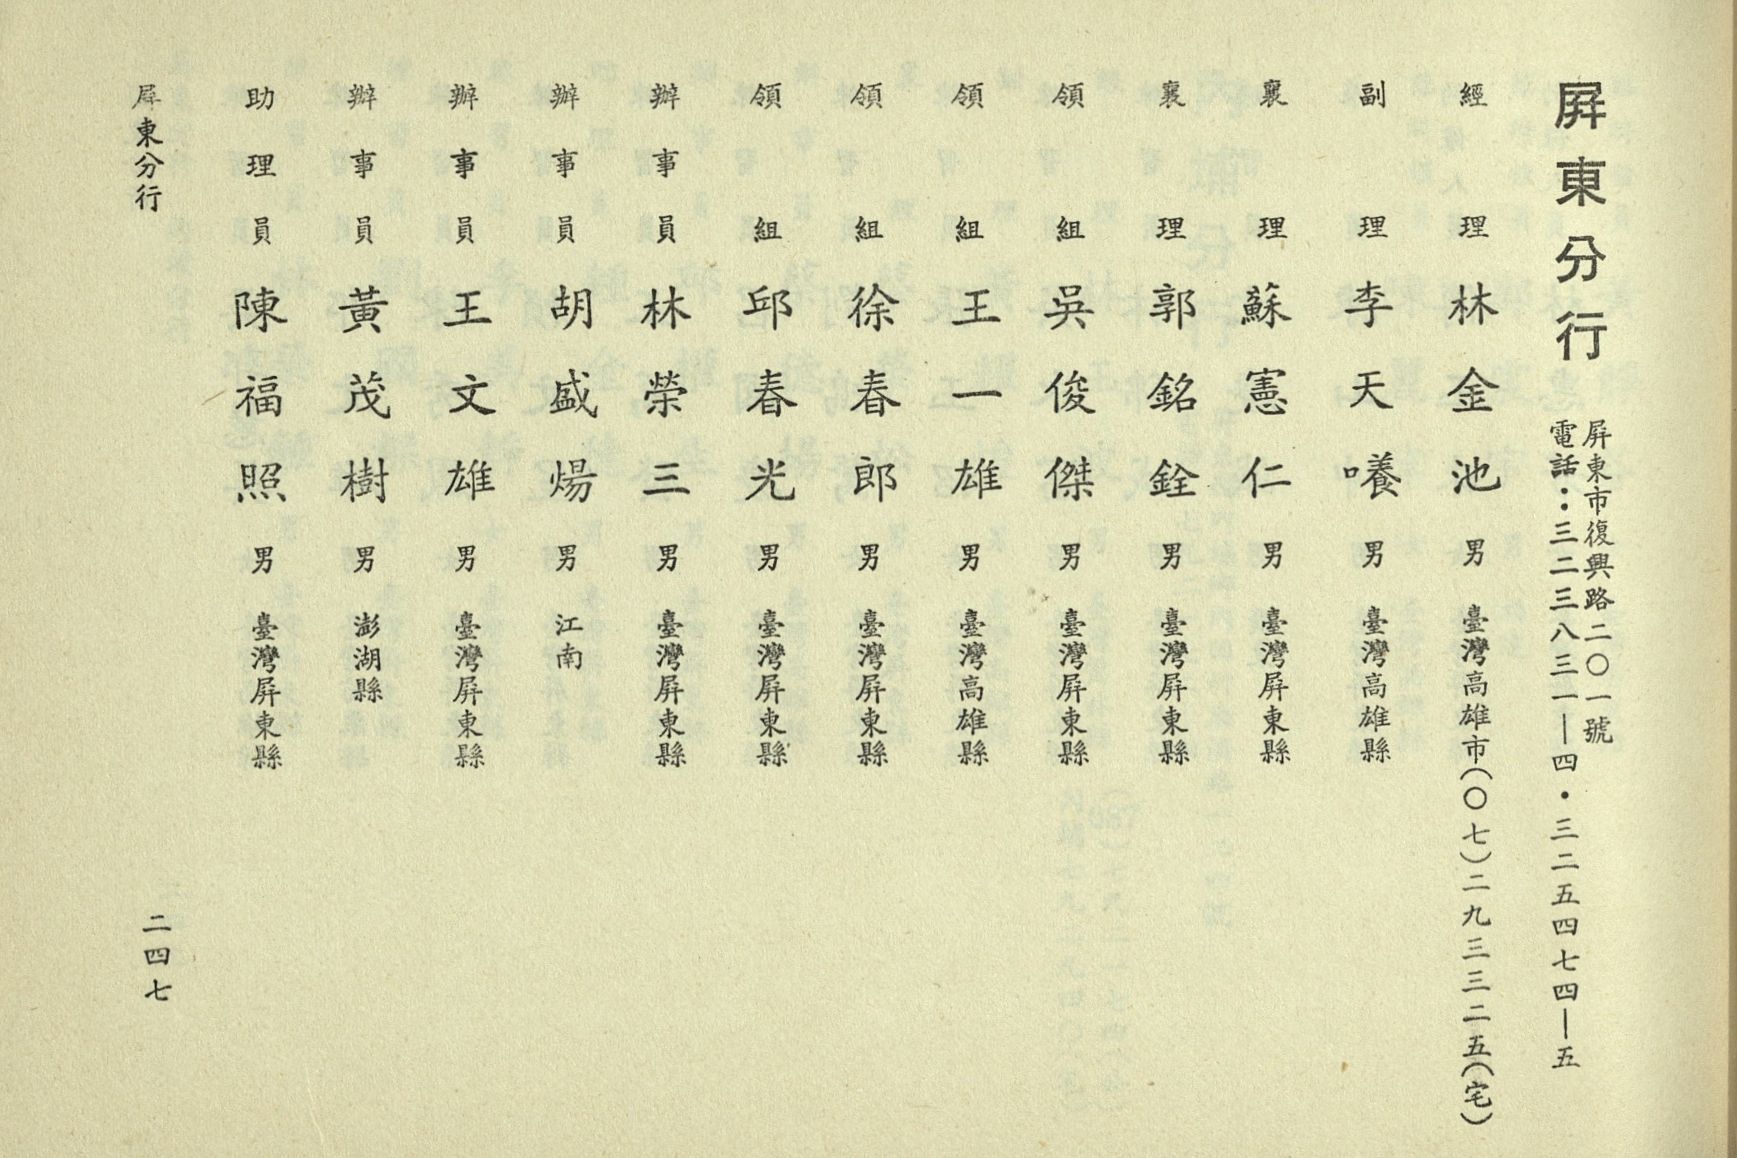 屏東分行
屏東市復興路二〇一號
電話：三二三八三一—四・三二五四七四—五
經理 林金池 男 臺灣高雄市(〇七)二九三三二五(宅)
副理 李天㗨 男 臺灣高雄縣
襄理 蘇憲仁 男 臺灣屏東縣
襄理 郭銘銓 男 臺灣屏東縣
領組 吳俊傑 男 臺灣屏東縣
領組 王一雄 男 臺灣高雄縣
領組 徐春郎 男 臺灣屏東縣
領組 邱春光 男 臺灣屏東縣
辦事員 林榮三 男 臺灣屏東縣
辦事員 胡盛煬 男 江南
辦事員 王文雄 男 臺灣屏東縣
辦事員 黃茂樹 男 澎湖縣
助理員 陳福照 男 臺灣屏東縣
屏東分行
二四七